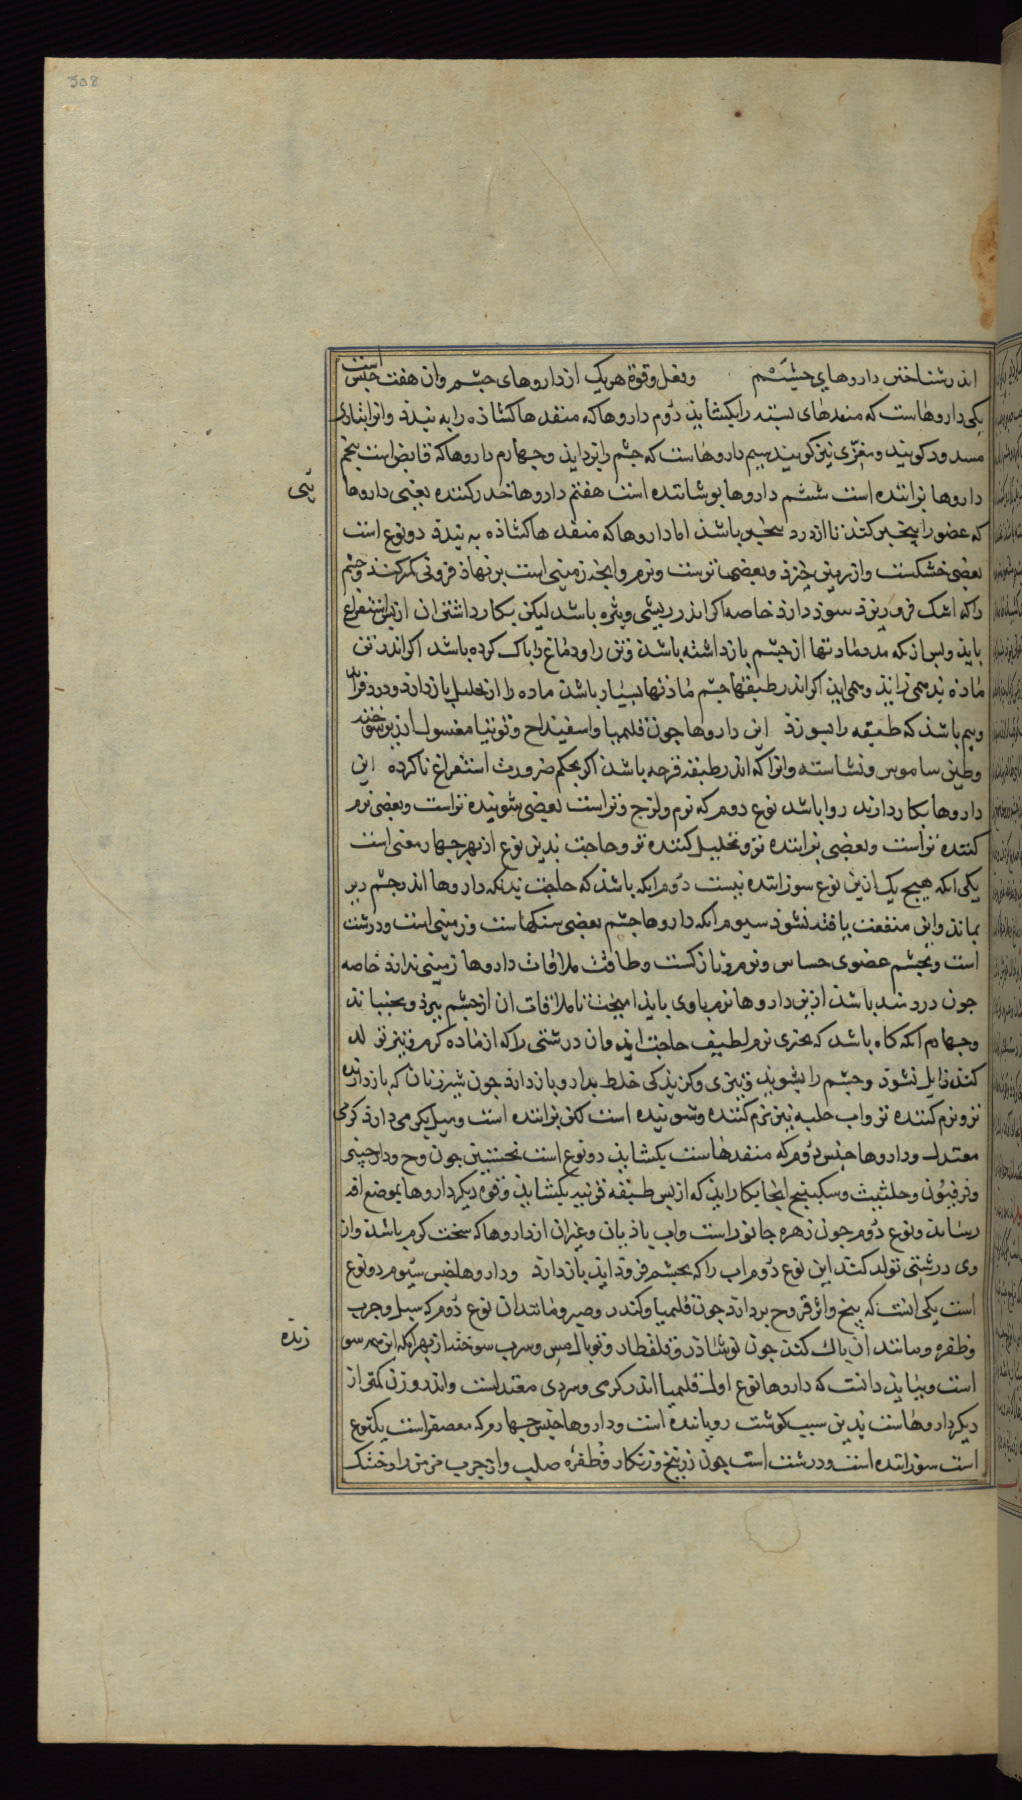 308
اندر شناختن داروهای چشم وفعل وقوة هریک از داروهای چشم وان هفت جنس است
یکی داروهاست که منفذهای بسته را بکشاید دوم داروها که منفدها کشاذه را به بندد وانرا بتازی
مسدود کویند ومغری نیز کویند سیم داروهاست که چشم را بزداید وچهارم داروها که قابض است پنجم
داروها پزانده است ششم داروها پوشاننده است هفتم داروها خدر کننده یعنی داروها
که عضو را بیخبر کند تا از درد بیخبر باشد اما داروها که منفدها کشاذه به بندد دو نوع است
بعضی خشکست وارمیتی جزو وبعضها ترست ونرم وانچه زمینی است برنهاد قزونی کمر کند وچشم
را که اشک فرو ریزد سوذ دارد خاصه اکر اندر ریشی وبثره باشد لیکن بکار داشتن ان از پس استفراغ
باید وپس از انکه مدد مادتها از چشم باز داشته باشد وتن را ودماغ را پاک کرده باشد اکر اندر تن
ماده بد می زاید ومی اید اکر اندر طبقها چشم ماذتها بسیار باشد ماده را از تحلیل باز دارد ودرد
وبیم باشد که طبقه را بسوزد این داروها چون قلیمیا واسفیداج وتوتیا مغسول
وطین ساموس ونشاسته وانرا که اندر طبقه قرحه باشد اکر بحکم ضرورت استفراغ ناکرده این
داروها بکار دارند روا باشد نوع دوم که نرم ولزج وتر است بعضی شوینده تر است وبعضی نرم
کننده تر است وبعضی پزاینده تر وتحلیل کننده تر وحاجت بدین نوع از بهر چهار معنی است
یکی انکه هیچ یک ازین نوع سوزاننده نیست دوم انکه باشد که حاجت بدانکه داروها اندر چشم دیر
بماند واین منفعت یافته نشود سیوم انکه داروها چشم بعضی سنکهاست وزمینی است ودرشت
است وچشم عضوی حساس ونرم ونازکست وطاقت ملاقات داروها زمینی ندارد خاصه
چون دردمند باشد ازین داروها نرم باوی باید امیخت تا ملاقات ان از چشم ببرد وبجنباند
وچهارم انکه کاه باشد که بچیزی نرم لطیف حاجت اید وان درشتی را که از ماده کرم وتیز تو لد
کند زایل شود وچشم را بشوید وتیزی وکزیدکی خلط بدارد وباز دارد چون شیر زنان که باز دارنده
تر ونرم کننده تر واب حلبه نیز نرم کننده وشوینده است لکن پزاننده است ومیل بکرمی دارد کرمی
معتدل وداروها جنس دوم که منفدهاست بکشاید دو نوع است نخستین چون وج ودارچینی
وفرفیون وحلتیت وسکبینج انجا بکار اید که از پس طبقه قرنیه بکشاید وقوة دیکر داروها بموضع افه
رساند ونوع دوم چون زهره جانوراست واب باذیان وغیران از داروها که سخت کرم باشد واز
وی درشتی تولد کند این نوع دوم اب را که بچشم فرود اید باز دارد وداروها جنس سیوم دو نوع
است یکی انست که پیخ واثر قروح بردارد چون قلیمیا وکندر وصبر ومانند ان نوع دوم که سبل وجرب
وظفره ومانند ان پاک کند چون نوشاذر وقلقطار وتوبال مس ومس سوخته از بهر انکه این هر سو
است وبباید دانست که داروها نوع اول قلیمیا اندر کرمی وسردی معتدلست واندر وزن کمتر از
دیکر داروهاست بدین سبب کوشت رویانده است وداروها جنس چهارم که معصفر است یکنوع
است سوزاننده است ودرشت است چون زرنیخ وزنکار وظفره صلب وان جرب مزمن را وخشک
زنده